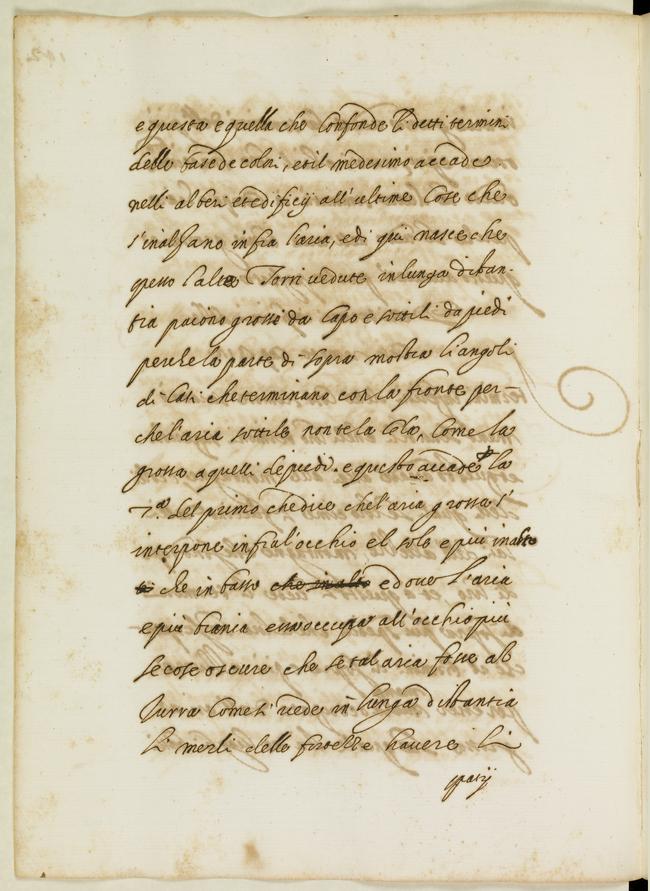 e questa e quella che confonde li detti termini
delle base de colli, et il medesimo accade
nelli alberi et edificij all'ultime cose che
s'inalzano infra l'aria, e di qui nasce che
spesso l'alte Torri vedute in lunga distan-
tia paiono grosse da capo e sottili da piedi
perche la parte di sopra mostra li angoli
di lati che terminano con la fronte per-
che l'aria sottile non te la cela, come la
grossa a quelli de piedi. e questo accade p la
7.a del primo che dice che l'aria grossa s'
interpone infra l'occhio el sole e piu in alto
che in basso che in alto e dove l'aria
e piu biania essa occupa all'occhio piu
le cose oscure che se tal aria fosse az
zurra come si vede in lunga distantia
li merli delle fortezze havere li
spatij